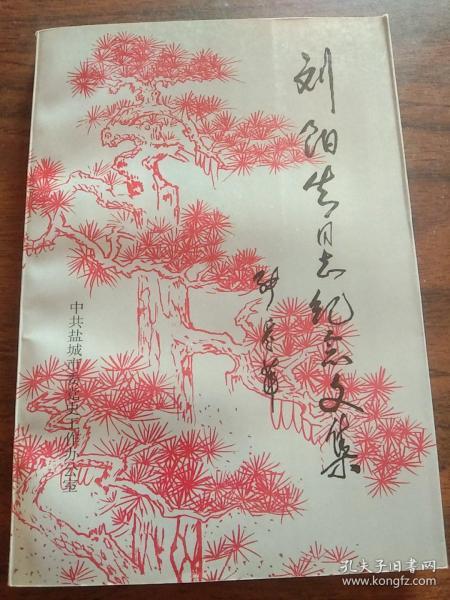 刘阳生同志纪念文集
中共盐城市委党史工作办公室
孔夫子旧书网
www.kongfz.com